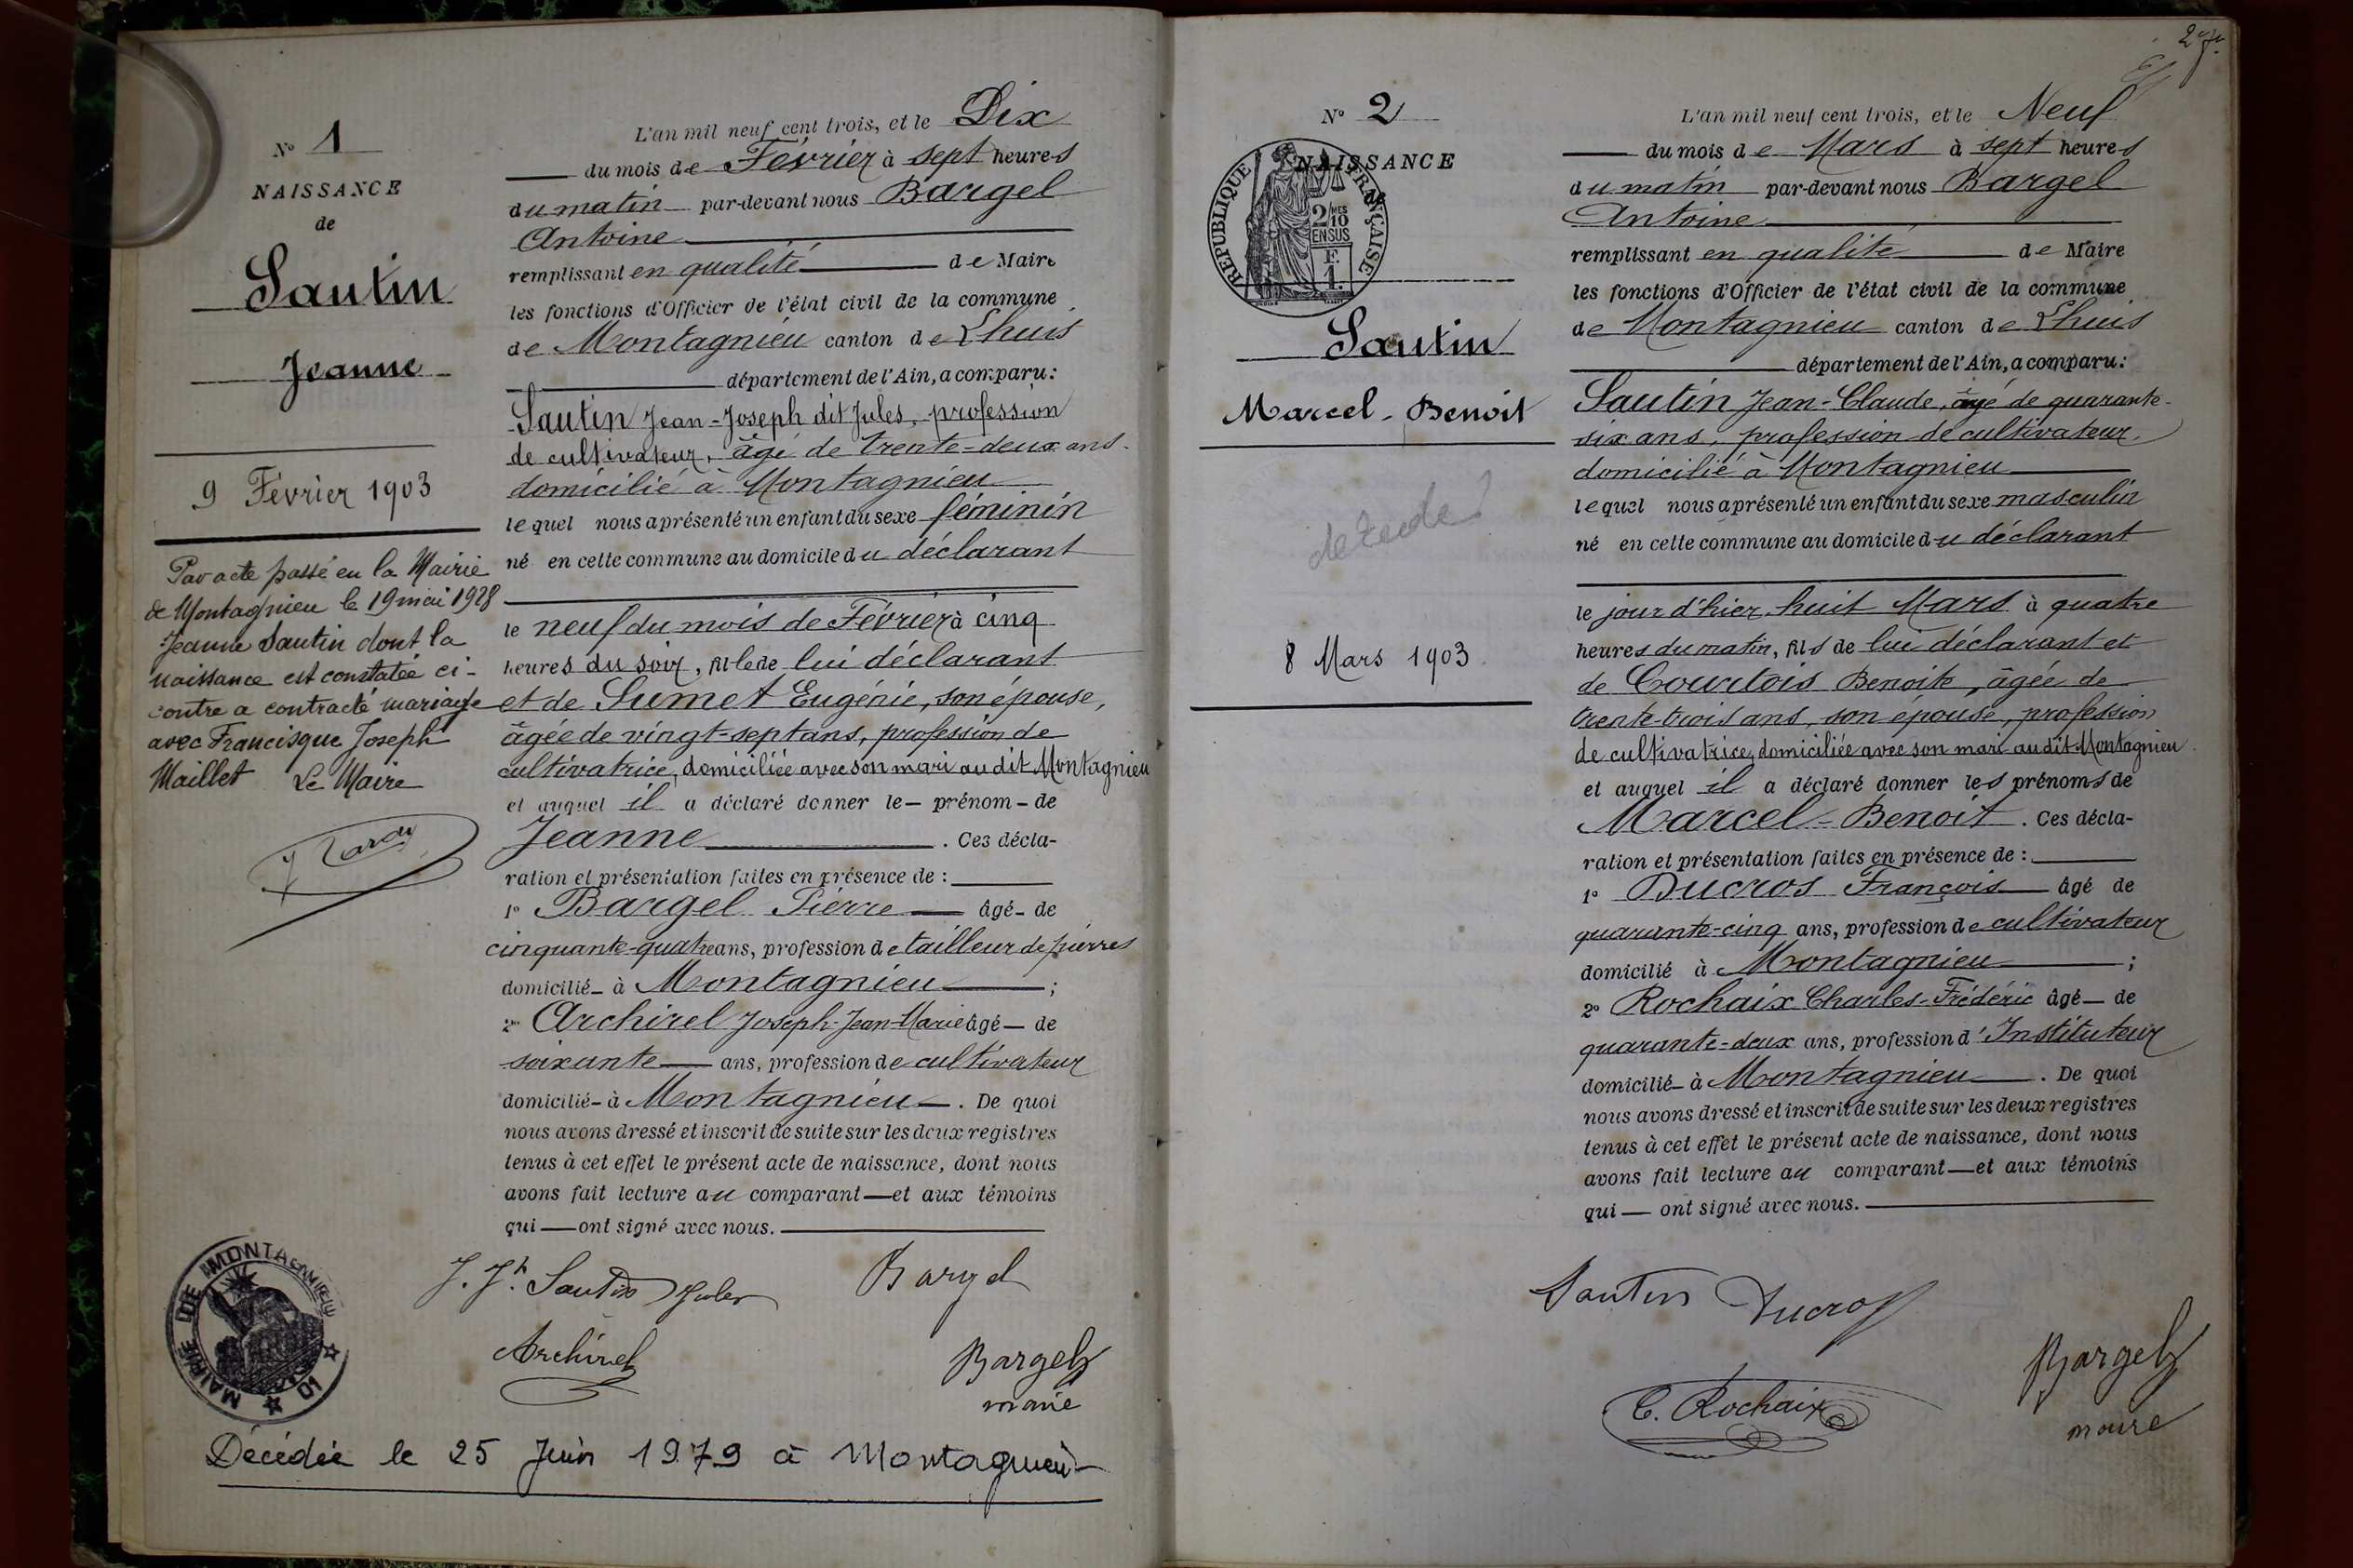 N° 1
NAISSANCE
de
Sautin
Jeanne
9 Février 1903
Par acte passé en la Mairie
de Montagnieu le 19 mai 1928
Jeanne Sautin dont la
naissance est constatée ci-
contre a contracté mariage
avec Francisque Joseph
Maillet Le Maire
L'an mil neuf cent trois, et le Dix
du mois de Février à sept heures
du matin par-devant nous Bargel
Antoine
remplissant en qualité de Maire
les fonctions d'Officier de l'état civil de la commune
de Montagnieu canton de Lhuis
département de l'Ain, a comparu :
Sautin Jean-Joseph dit Jules, profession
de cultivateur, âgé de trente-deux ans
domicilié à Montagnieu
lequel nous a présenté un enfant du sexe féminin
né en cette commune au domicile du déclarant
le neuf du mois de Février à cinq
heures du soir, fille de lui déclarant
et de Sumet Eugénie, son épouse,
âgée de vingt-sept ans, profession de
cultivatrice, domiciliée avec son mari au dit Montagnieu
et auquel il a déclaré donner le prénom de
Jeanne. Ces décla-
ration et présentation faites en présence de :
1° Bargel Pierre âgé de
cinquante-quatre ans, profession de tailleur de pierres
domicilié à Montagnieu ;
2° Archirel Joseph-Jean-Marie âgé de
soixante ans, profession de cultivateur
domicilié à Montagnieu. De quoi
nous avons dressé et inscrit de suite sur les deux registres
tenus à cet effet le présent acte de naissance, dont nous
avons fait lecture au comparant et aux témoins
qui ont signé avec nous.
J. Jh. Sautin Jules Bargel
Archirel Bargel
maire
MAIRIE DE MONTAGNIEU
01
Décédée le 25 Juin 1979 à Montagnieu
N° 2
NAISSANCE
de
REPUBLIQUE FRANÇAISE
2/10 MES
EN SUS
F.
1.
Sautin
Marcel-Benoit
8 Mars 1903
L'an mil neuf cent trois, et le Neuf
du mois de Mars à sept heures
du matin par-devant nous Bargel
Antoine
remplissant en qualité de Maire
les fonctions d'Officier de l'état civil de la commune
de Montagnieu canton de Lhuis
département de l'Ain, a comparu :
Sautin Jean-Claude, âgé de quarante-
six ans, profession de cultivateur,
domicilié à Montagnieu
lequel nous a présenté un enfant du sexe masculin
né en cette commune au domicile du déclarant
le jour d'hier huit Mars à quatre
heures du matin, fils de lui déclarant et
de Courtois Benoite, âgée de
trente-trois ans, son épouse, profession
de cultivatrice, domiciliée avec son mari au dit Montagnieu
et auquel il a déclaré donner les prénoms de
Marcel-Benoit. Ces décla-
ration et présentation faites en présence de :
1° Ducros François âgé de
quarante-cinq ans, profession de cultivateur
domicilié à Montagnieu ;
2° Rochaix Charles-Frédéric âgé de
quarante-deux ans, profession d'Instituteur
domicilié à Montagnieu. De quoi
nous avons dressé et inscrit de suite sur les deux registres
tenus à cet effet le présent acte de naissance, dont nous
avons fait lecture au comparant et aux témoins
qui ont signé avec nous.
Sautin Ducros
Bargel
C. Rochaix
maire